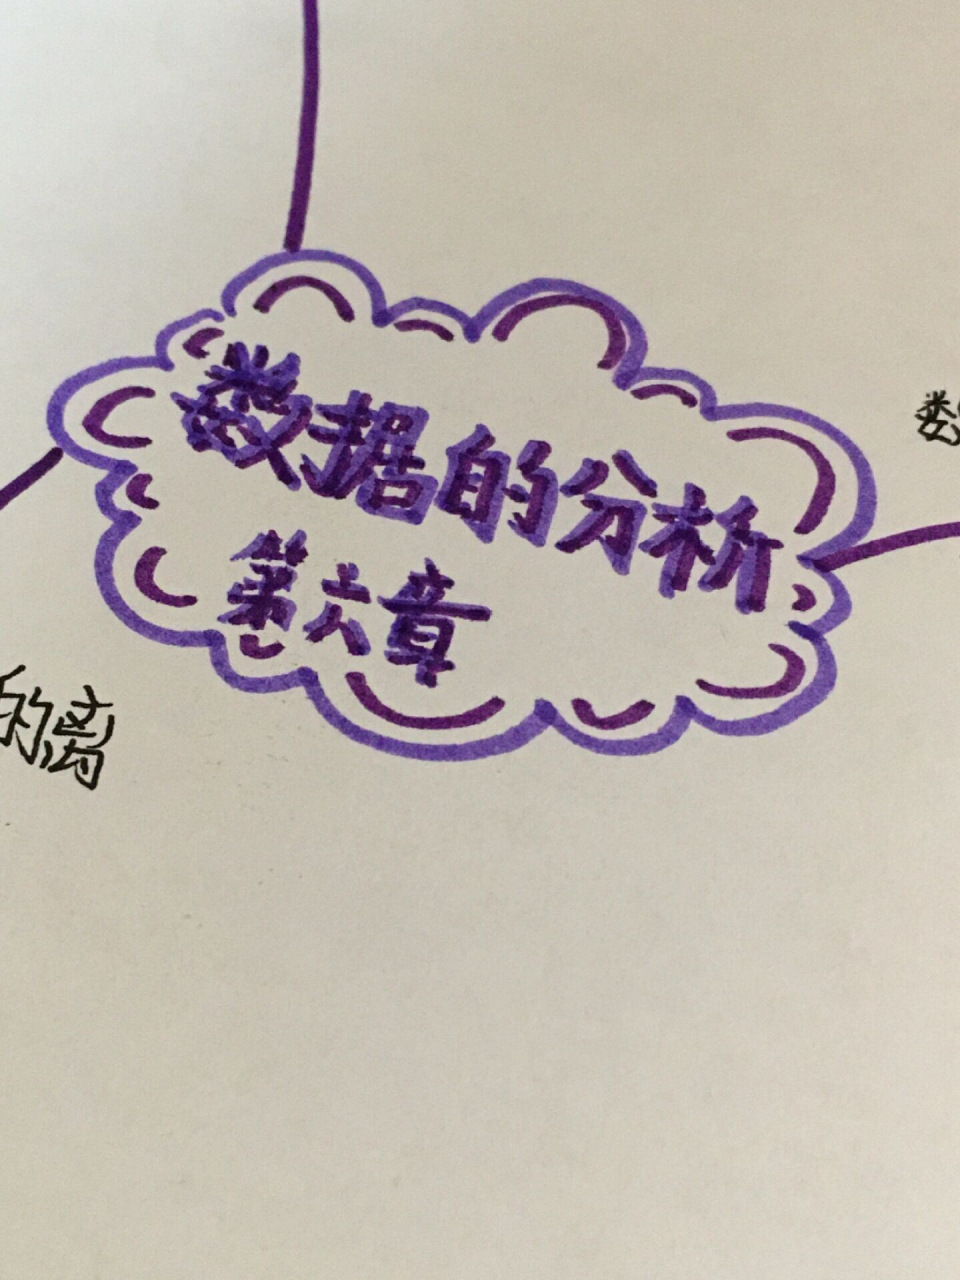 数据的分析
第六章
数
的离